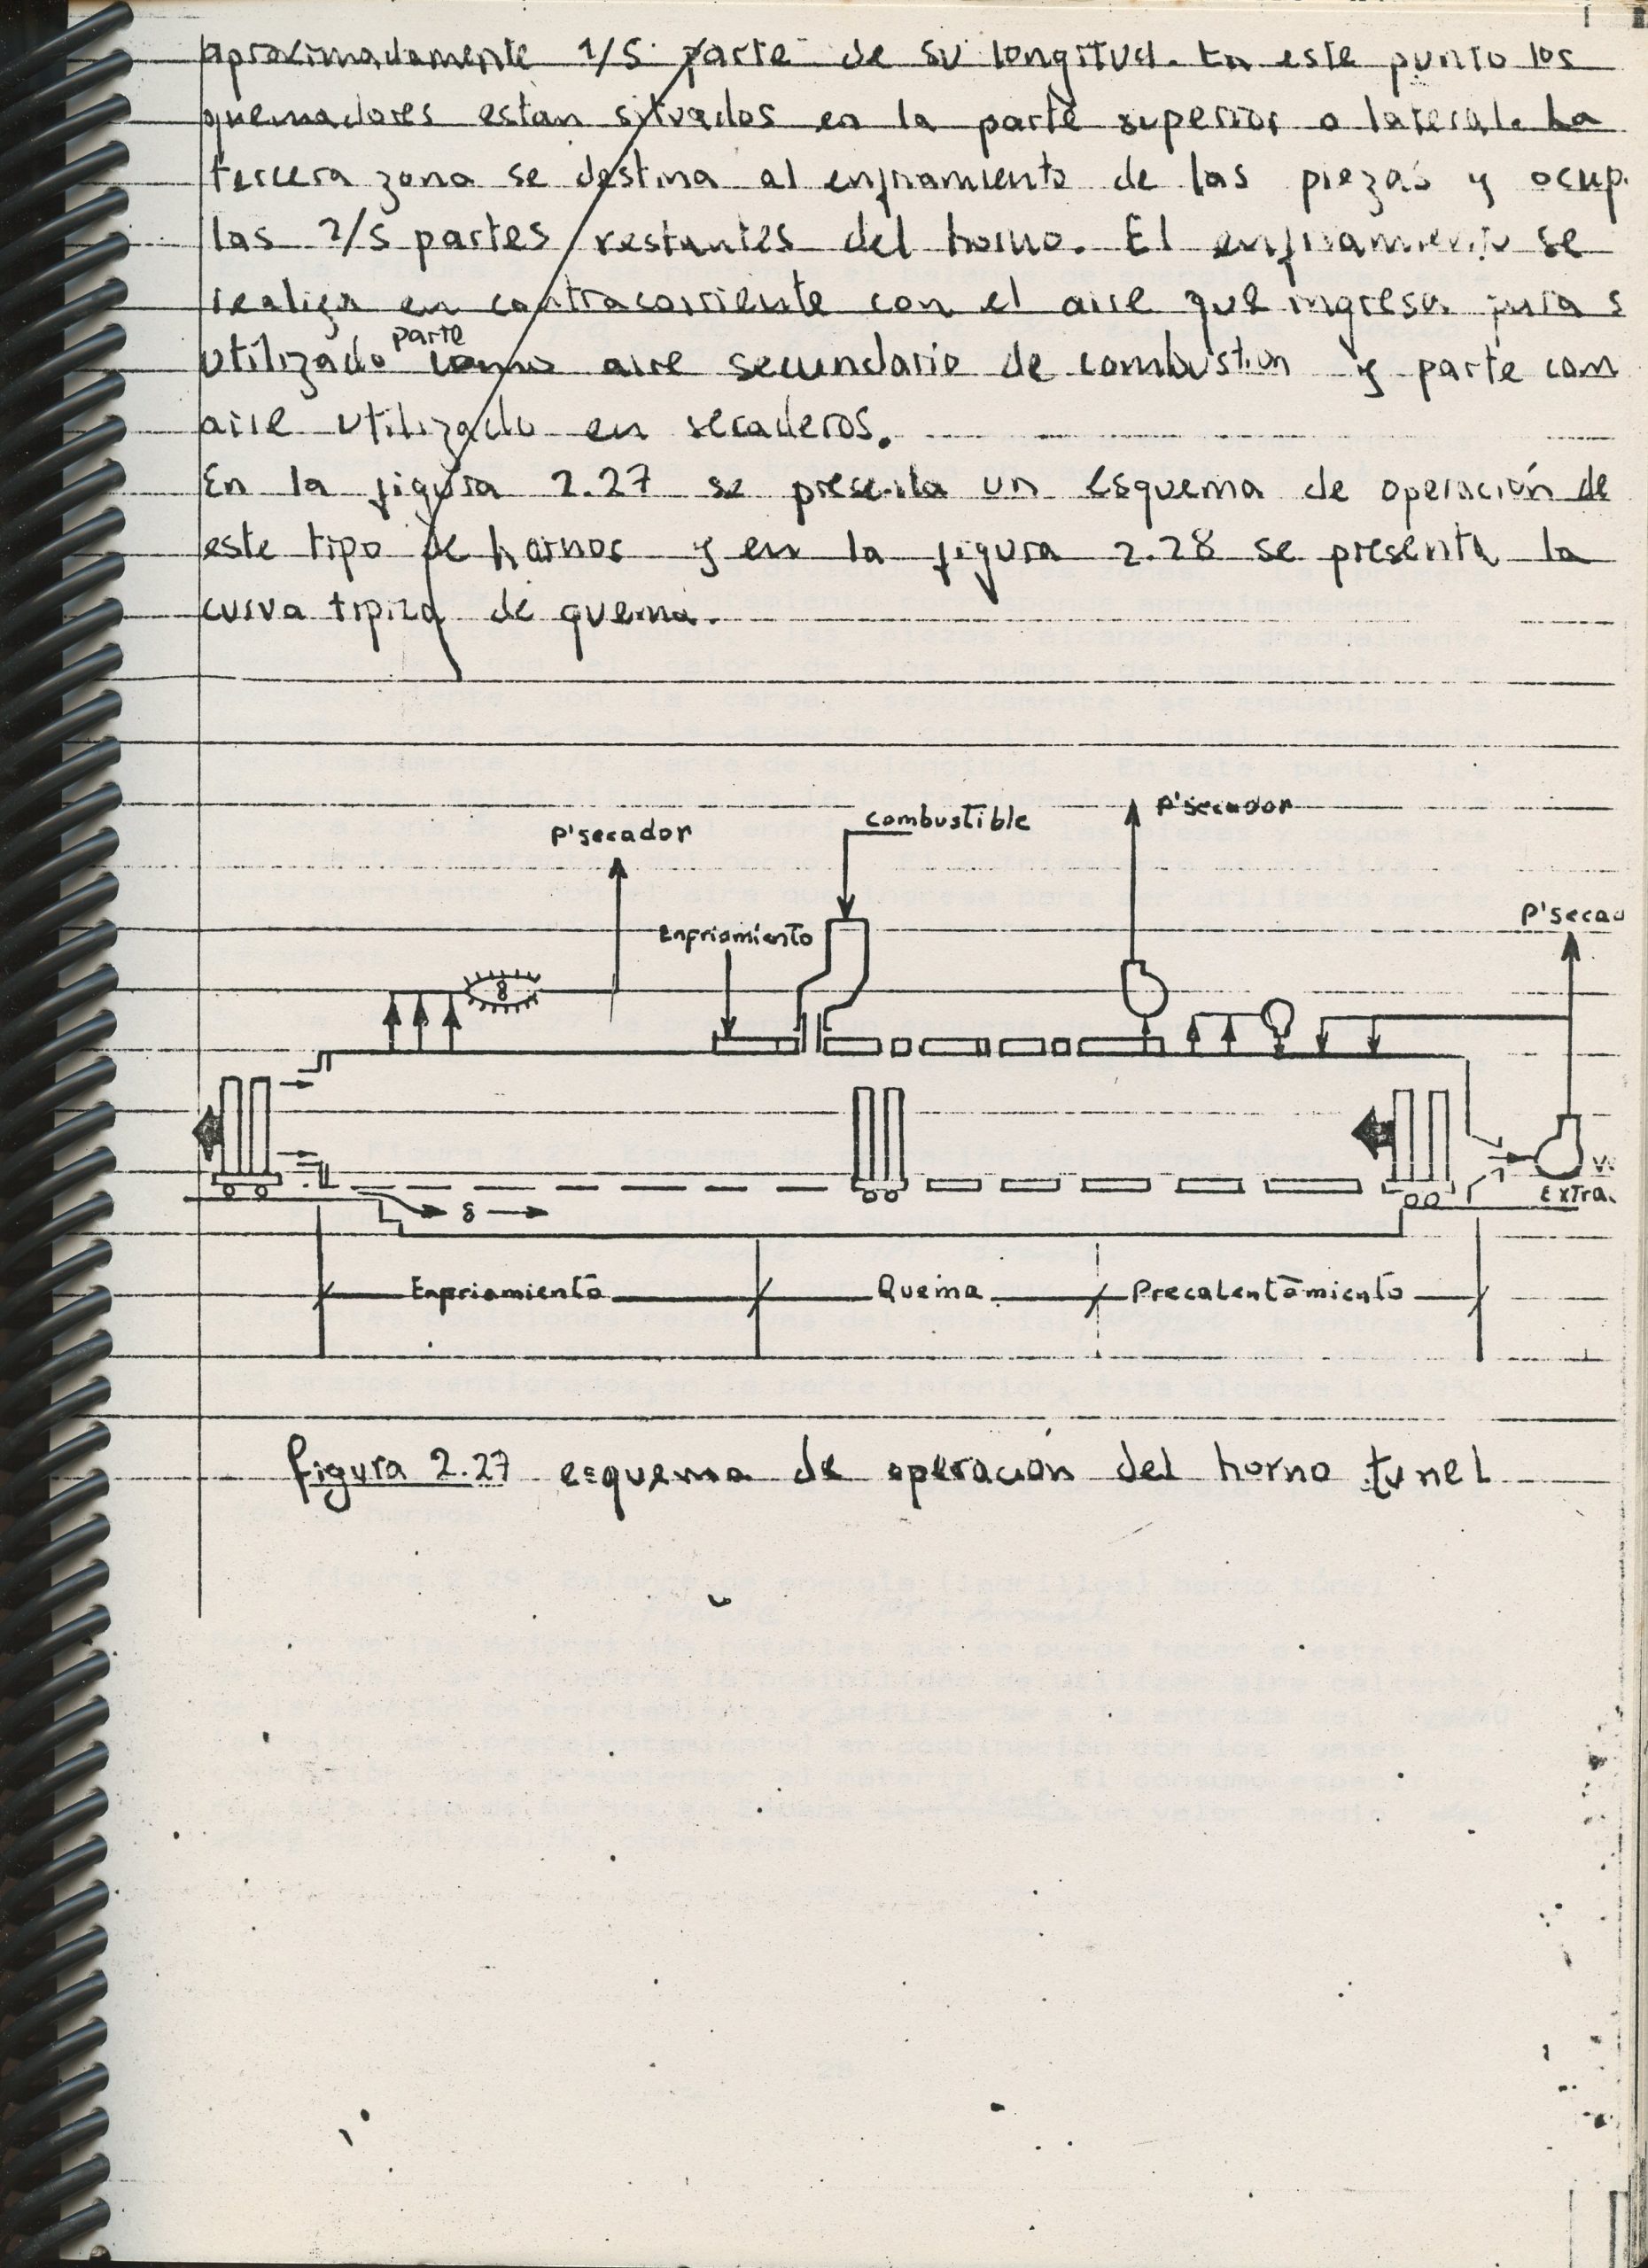 aproximadamente 1/5 parte de su longitud. En este punto los
quemadores estan situados en la parte superior o lateral. La
tercera zona se destina al enfriamiento de las piezas y ocup
las 2/5 partes restantes del horno. El enfriamiento se
realiza en contracorriente con el aire que ingresa para s
utilizado parte como aire secundario de combustion y parte com
aire utilizado en secaderos.
En la figura 2.27 se presenta un esquema de operación de
este tipo de hornos y en la figura 2.28 se presenta la
curva tipica de quema.
P'secador
Combustible
P'secador
P'secad
Enfriamiento
Extra.
Enfriamiento
Quema
Precalentamiento
figura 2.27 esquema de operación del horno tunel